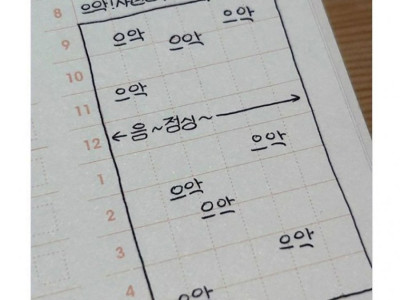 8 으악!
으악
9 으악 으악
10
으악
11
12 음~점심~
으악
1
으악
2 으악
3 으악
4 으악